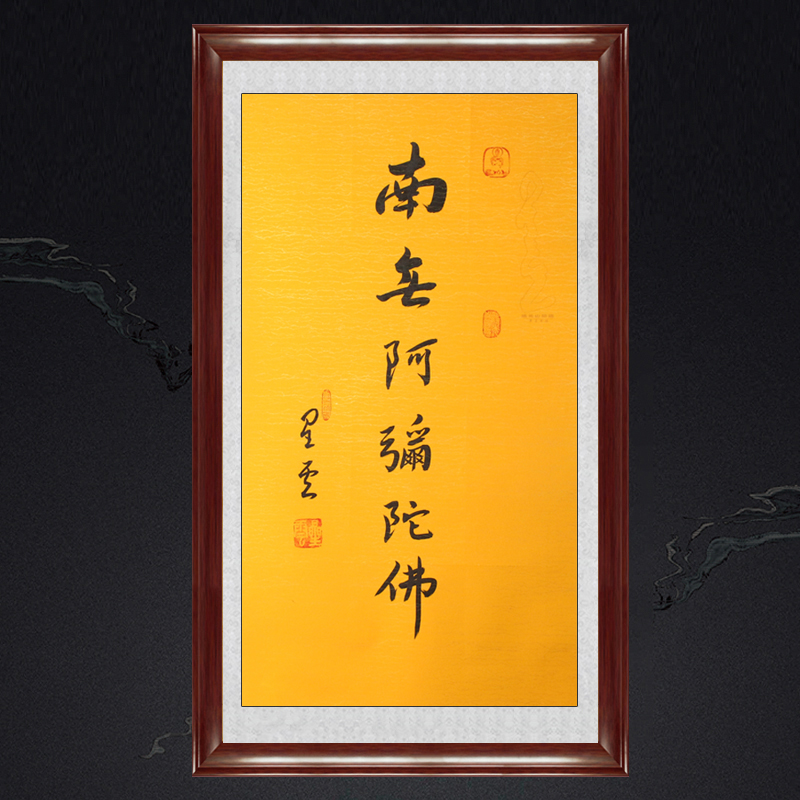 南無阿彌陀佛
星雲